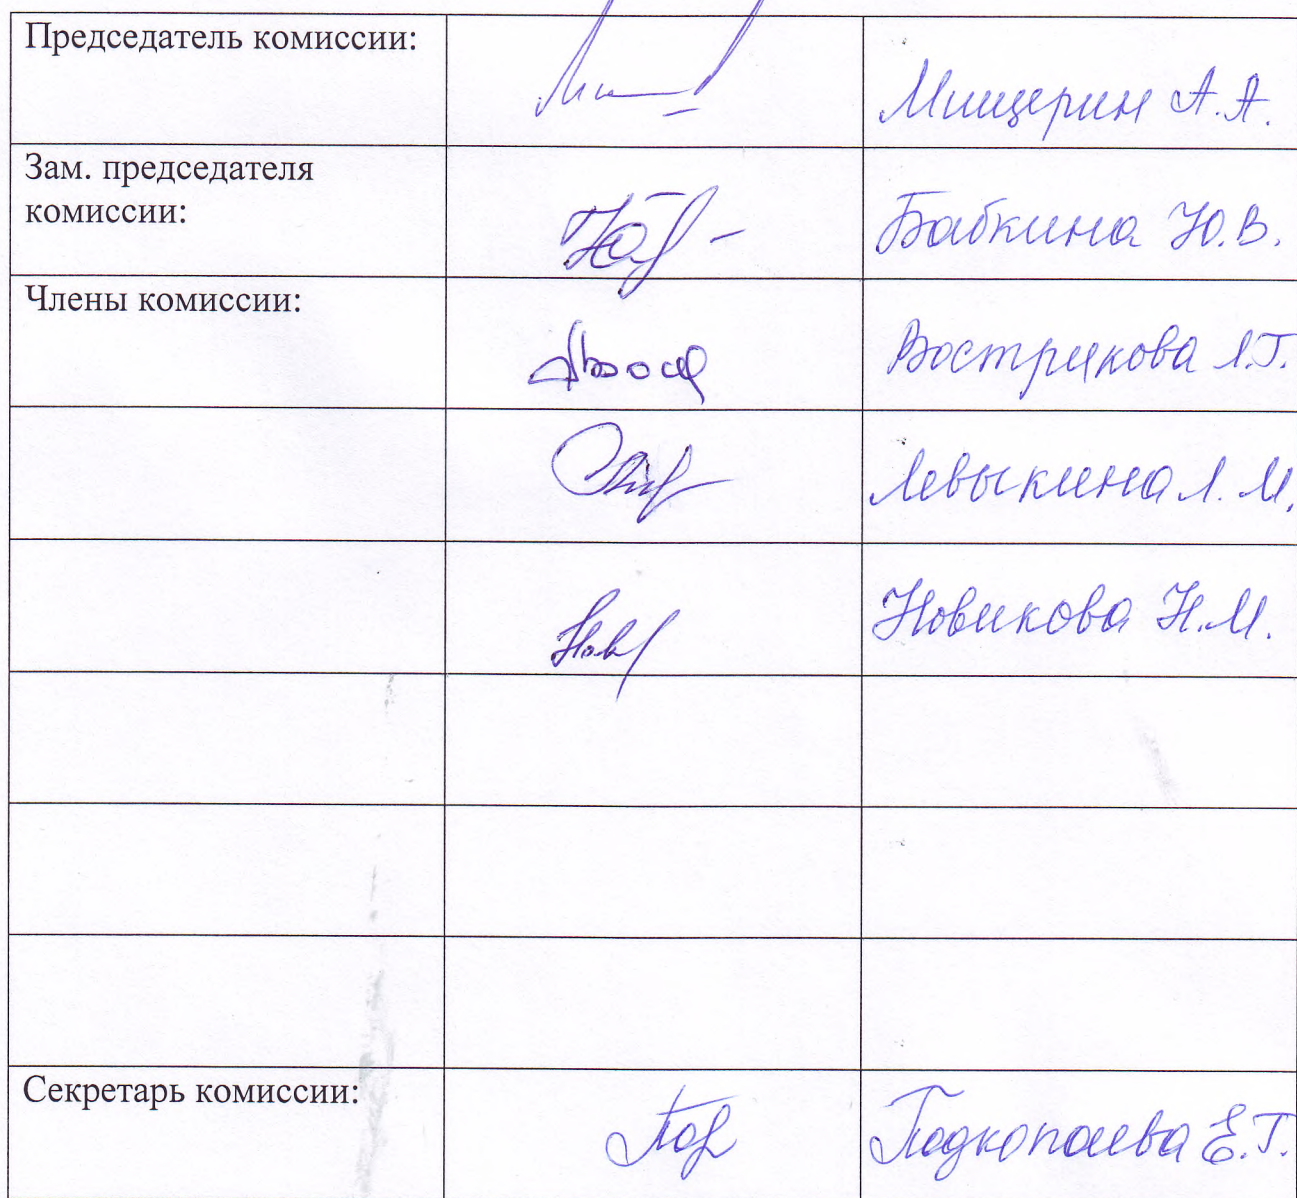 Председатель комиссии:
Мищерин А.А.
Зам. председателя
комиссии:
Бабкина Ю.В.
Члены комиссии:
Вострикова Л.Г.
Левыкина Л.М.
Новикова Н.М.
Секретарь комиссии:
Подкопаева Е.Г.